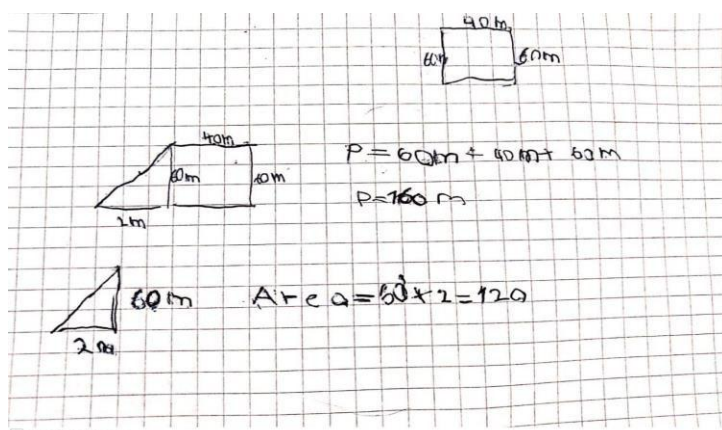 40m
60m 60m
40m
60m 60m
P=60m+40m+60m
P=160m
2m
60m Area=60×2=120
2m